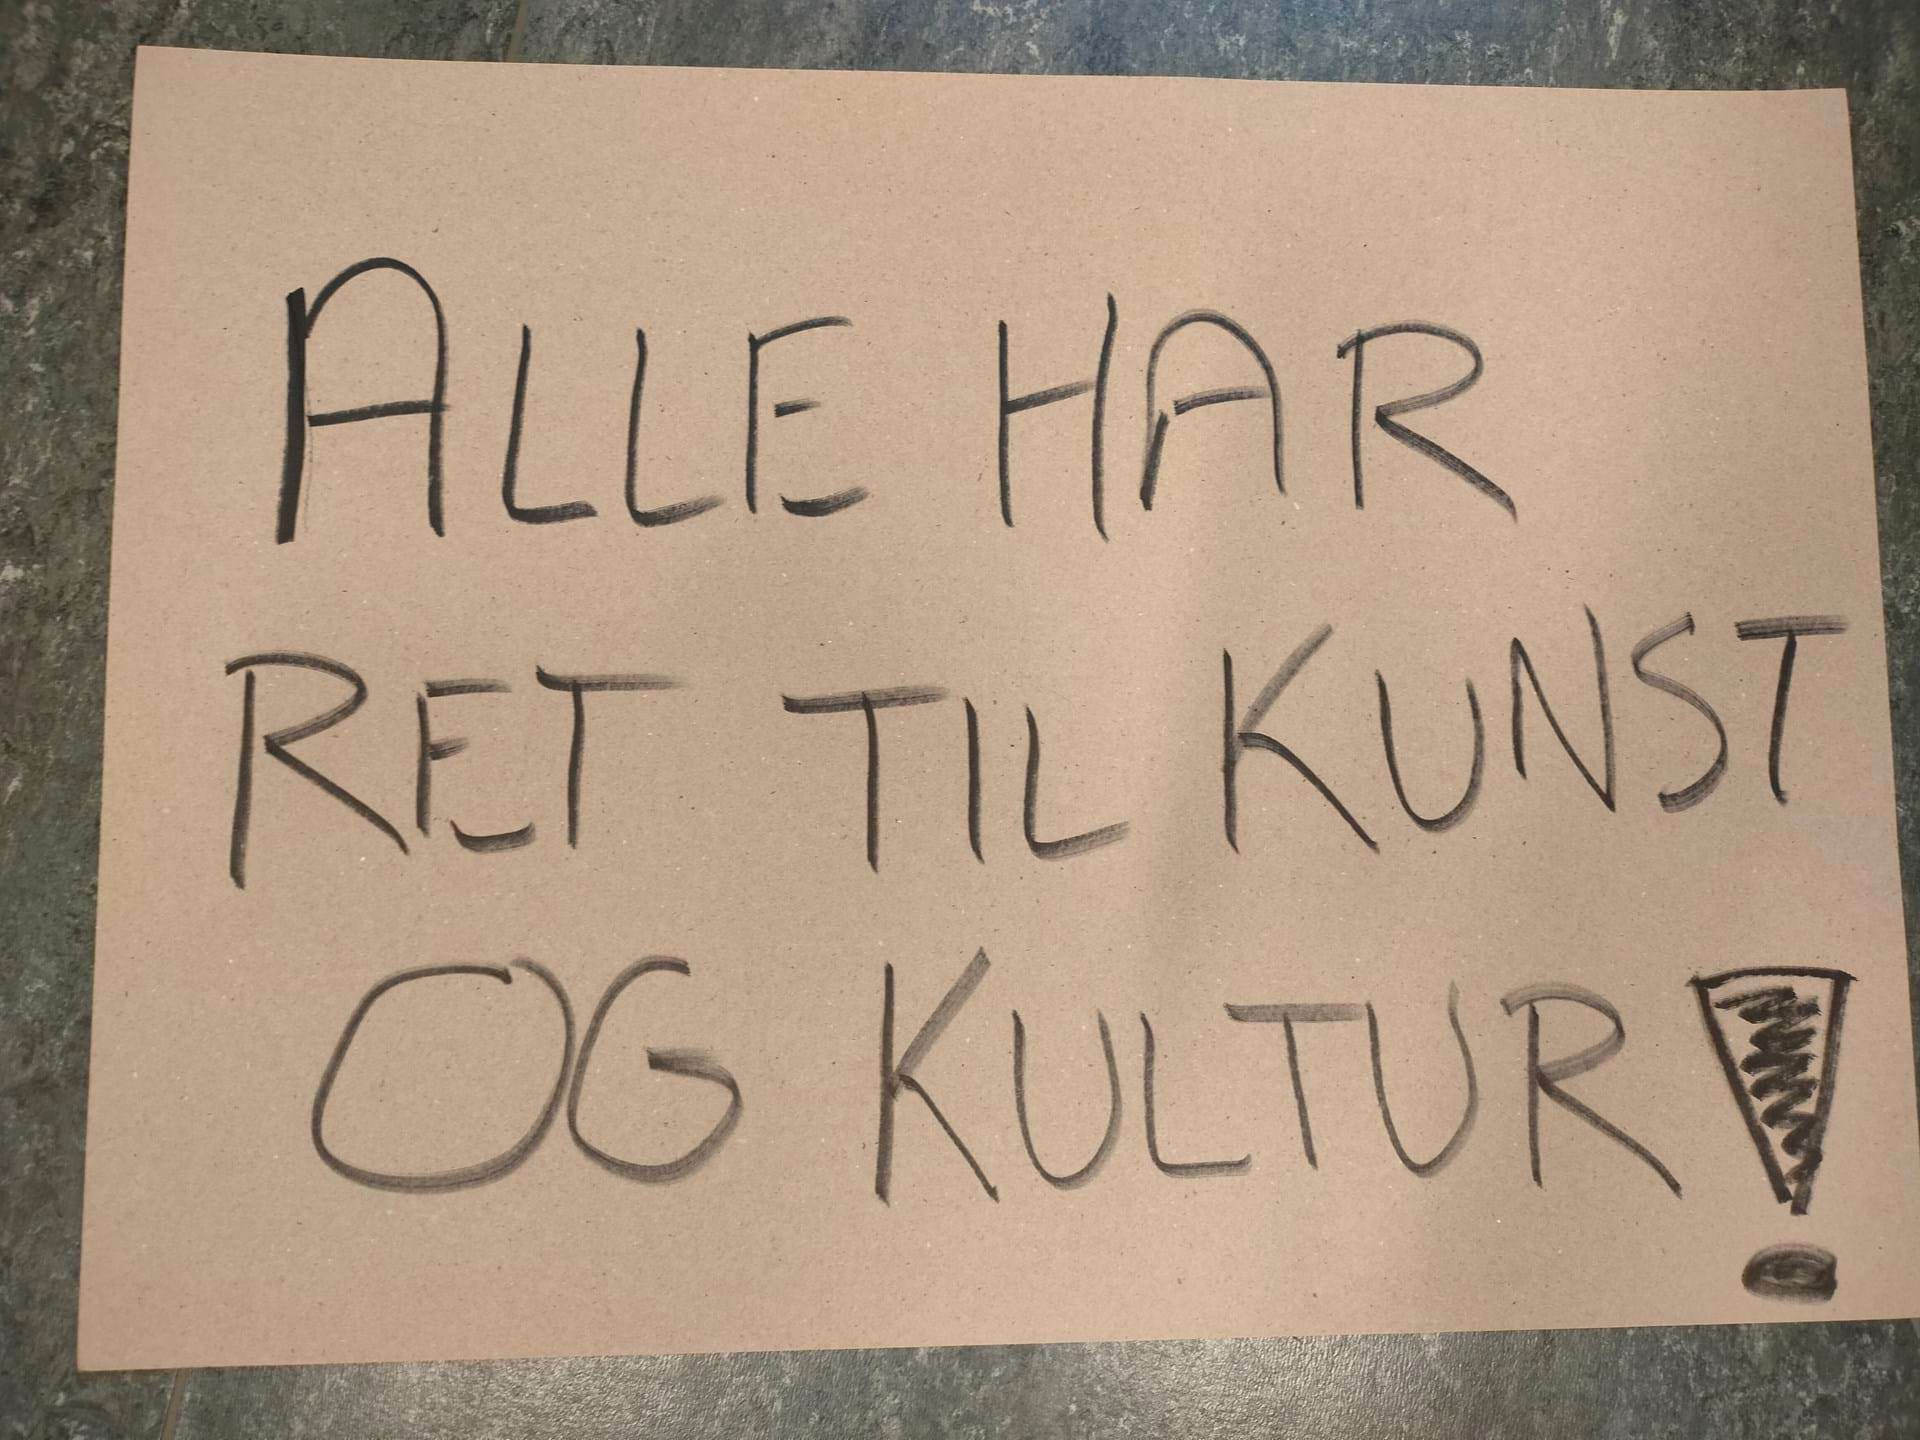 ALLE HAR
RET TIL KUNST
OG KULTUR!